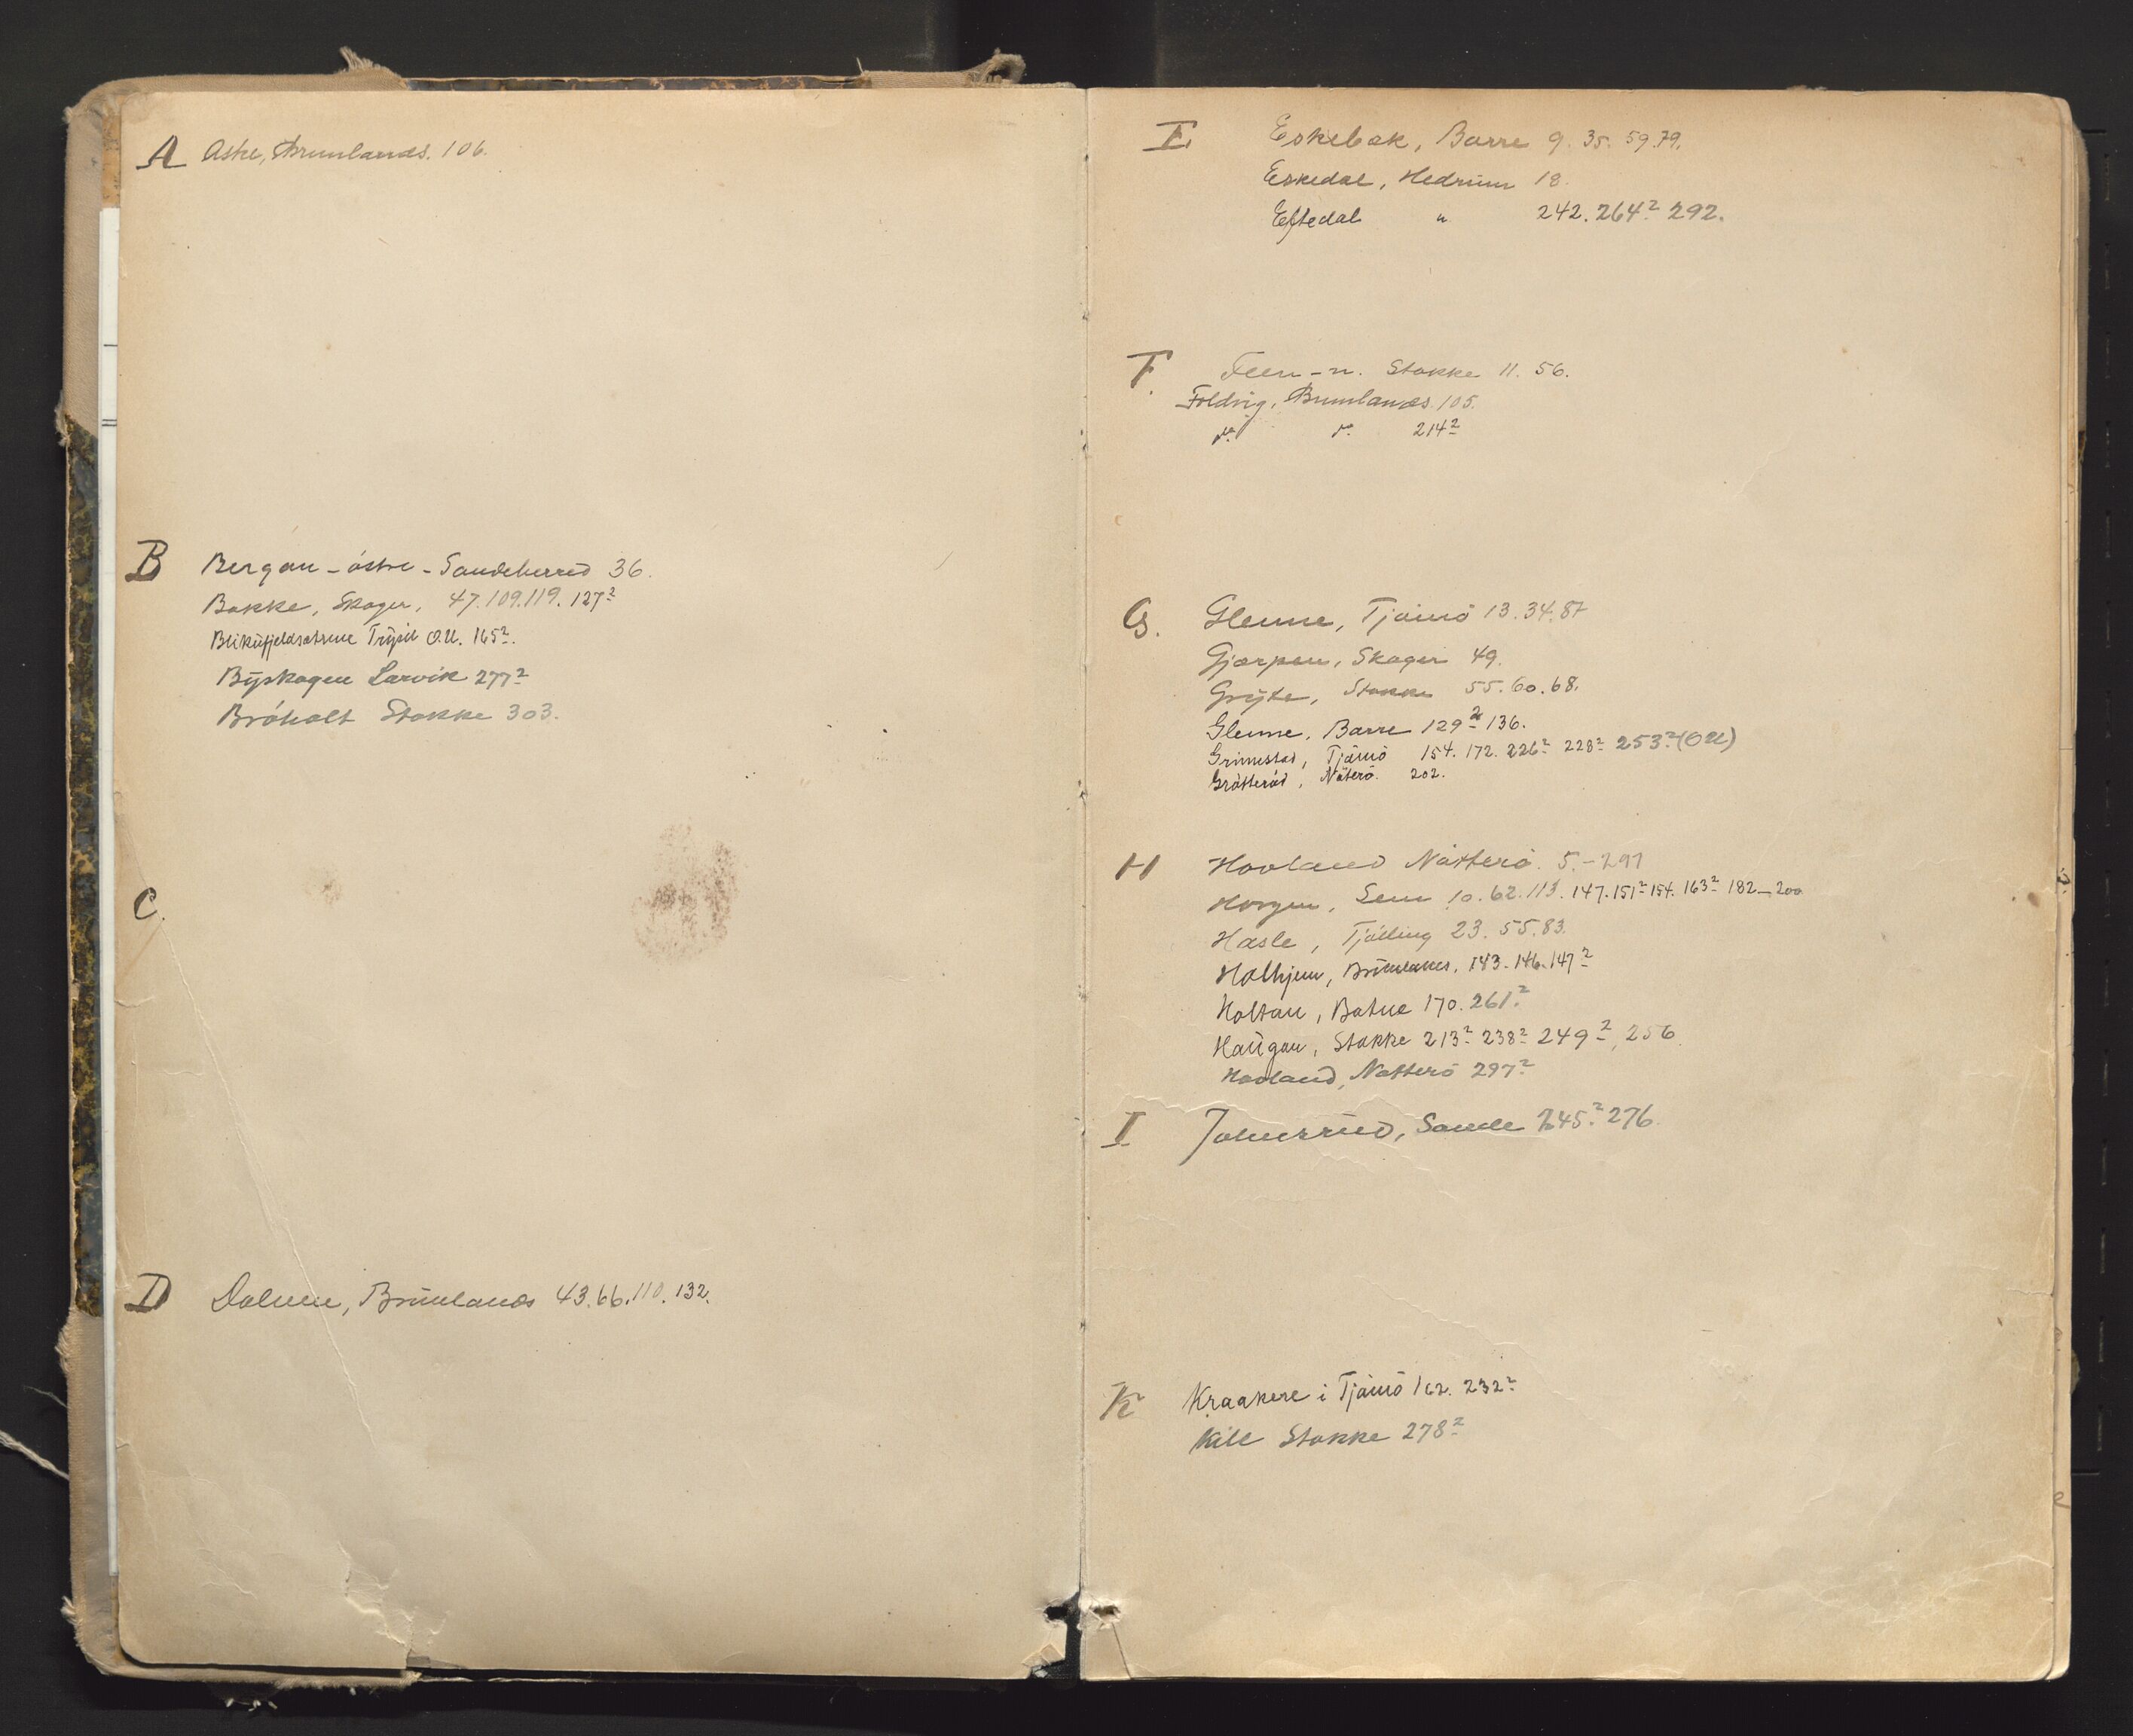 A Aske, Brunlanæs. 106.
B Bergan - östre - Sandeherred 36.
Bakke, Skoger, 47. 109. 119. 127²
Blikufjeldsætrene Trysil O.U. 165².
Byskogen Larvik 277²
Bröholt Stokke 303.
C.
D Dolven, Brunlanæs 43. 66. 110. 132.
E Eskebæk, Borre 9. 35. 59. 79.
Eskedal, Hedrum 18.
Eftedal " 242. 264² 292.
F. Feen - n. Stokke 11. 56.
Foldvig, Brunlanæs. 105.
do. do. 214²
G. Glenne, Tjömö 13. 34. 87
Gjerpen, Skoger 49.
Gryte, Stokke 55. 60. 68.
Glenne, Borre 129² 136.
Grimestad, Tjömö 154. 172. 226² 228² 253² (OU)
Gråtteröd, Nöterö. 202.
H Hovland Nötterö. 5. - 297
Horgen, Sem 10. 62. 113. 147. 151² 154. 163² 182 - 200
Hasle, Tjölling 23. 55. 83.
Holhjem, Brunlanes, 143. 146. 147²
Holtan, Botne 170. 261²
Haugan, Stokke 213² 238² 249², 256
Hovland, Nötterö 297²
I Johnsrud, Sande 245² 276.
K Kraakere i Tjömö 162. 232²
Kile Stokke 278²